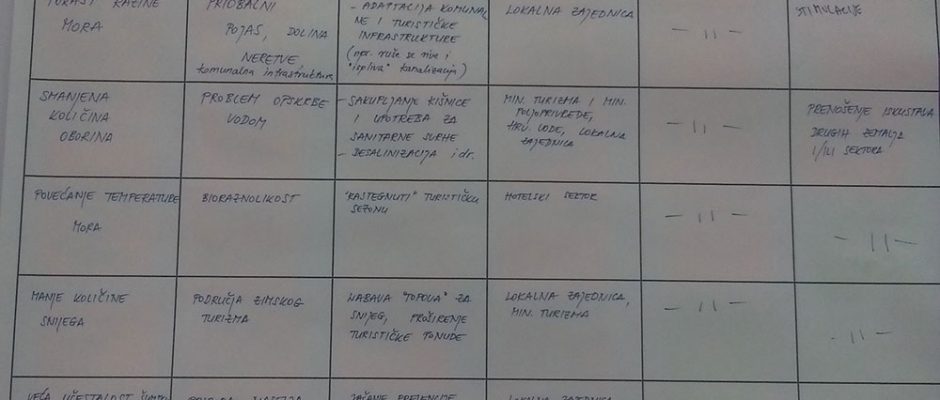 PORAST RAZINE
MORA
PRIOBALNI
POJAS, DOLINA
NERETVE
komunalna infrastruktura
- ADAPTACIJA KOMUNAL
NE I TURISTIČKE
INFRASTRUKTURE
(npr. ruše se rive i
"ispliva" kanalizacija)
LOKALNA ZAJEDNICA
- 11 -
STIMULACIJE
SMANJENA
KOLIČINA
OBORINA
PROBLEM OPSKRBE
VODOM
- SAKUPLJANJE KIŠNICE
I UPOTREBA ZA
SANITARNE SVRHE
- DESALINIZACIJA i dr.
MIN. TURIZMA I MIN.
POLJOPRIVREDE,
HRV. VODE, LOKALNA
ZAJEDNICA
- 11 -
PRENOŠENJE ISKUSTAVA
DRUGIH ZEMALJA
I/ILI SEKTORA
POVEĆANJE TEMPERATURE
MORA
BIORAZNOLIKOST
"RASTEGNUTI" TURISTIČKU
SEZONU
HOTELSKI SEKTOR
- 11 -
- 11 -
MANJE KOLIČINE
SNIJEGA
PODRUČJA ZIMSKOG
TURIZMA
NABAVA "TOPOVA" ZA
SNIJEG, PROŠIRENJE
TURISTIČKE PONUDE
LOKALNA ZAJEDNICA,
MIN. TURIZMA
- 11 -
- 11 -
VEĆA UČESTALOST
JAČANJE PREVENCIJE
LOKALNA ZAJEDNICA